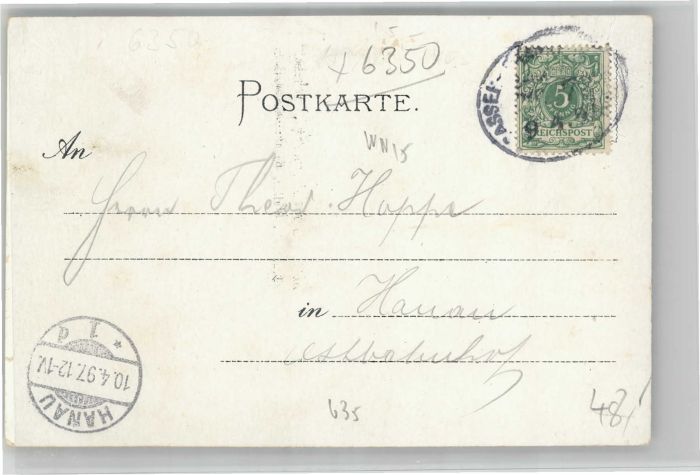 6350
+6350
POSTKARTE.
5
REICHSPOST
9 4
An
WN15
Herrn Theod. Hoppe
in Hanau
Ostbahnhof
HANAU
10.4.97.12-1V.
* 1 d
635
48/